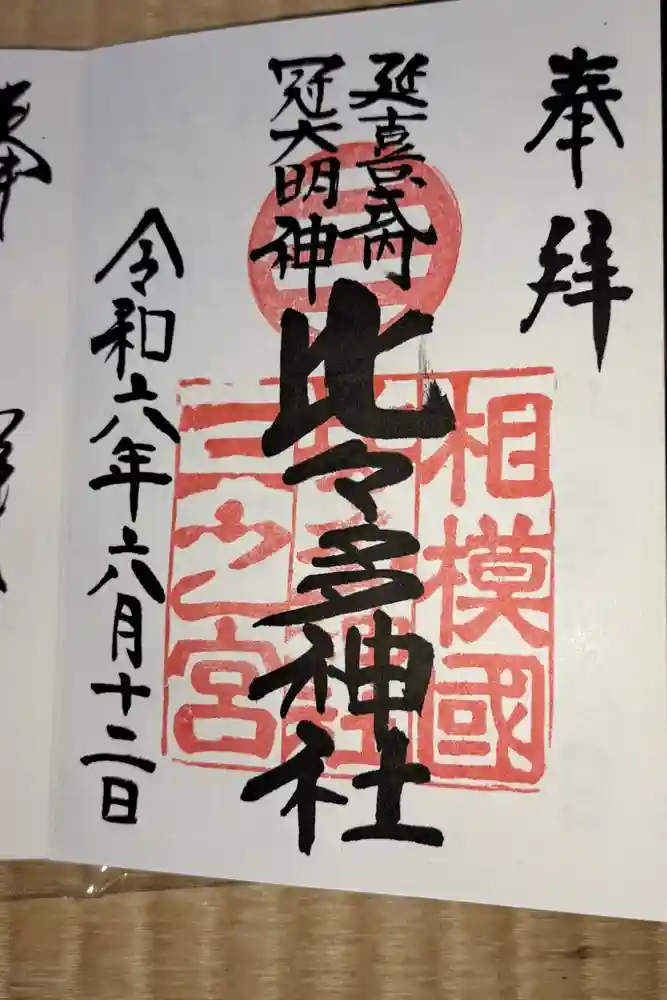 奉拝
延喜式内
冠大明神
比々多神社
令和六年六月十二日
相模國
三之宮